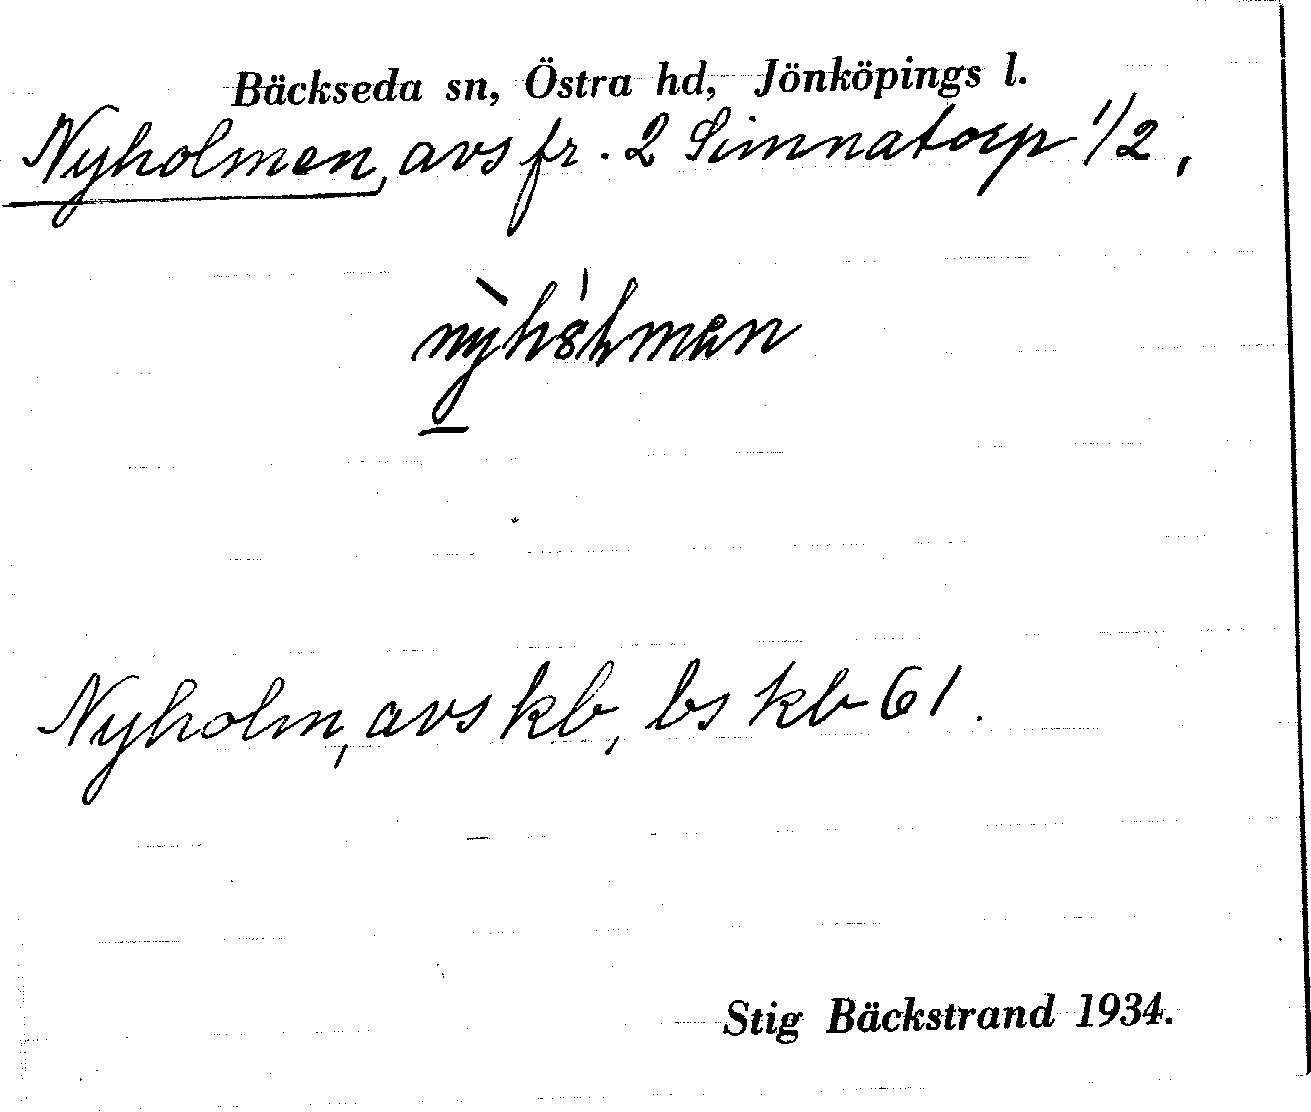 Bäckseda sn, Östra hd, Jönköpings l.
Nyholmen, avs fr. 2 Simnatorp 1/2,
Nyholm, avs kb, bs kb 61.
Stig Bäckstrand 1934.